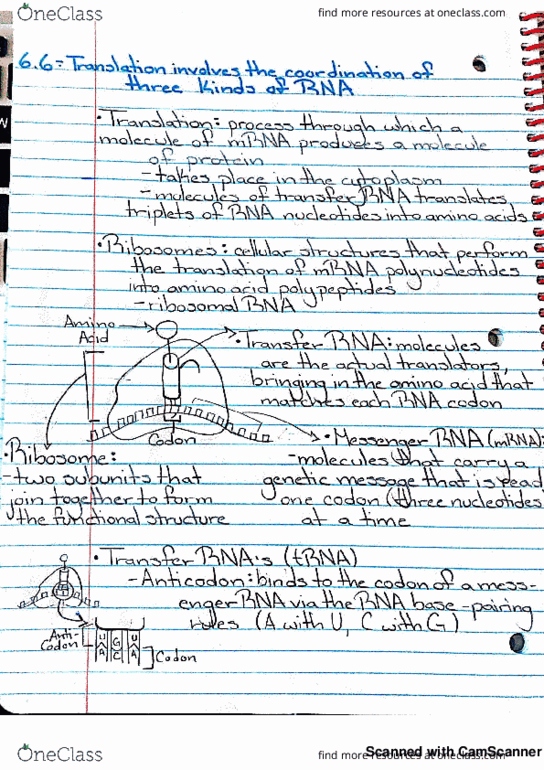 OneClass
find more resources at oneclass.com
6.6 = Translation involves the coordination of
three kinds of RNA
• Translation: process through which a
molecule of mRNA produces a molecule
of protein
- takes place in the cytoplasm
- molecules of transfer RNA translates
triplets of RNA nucleotides into amino acids
• Ribosomes: cellular structures that perform
the translation of mRNA polynucleotides
into amino acid polypeptides
- ribosomal RNA
Amino
Acid
• Transfer RNA: molecules
are the actual translators,
bringing in the amino acid that
matches each RNA codon
Codon
• Ribosome:
- two subunits that
join together to form
the functional structure
• Messenger RNA (mRNA):
- molecules that carry a
genetic message that is read
one codon (three nucleotides
at a time
• Transfer RNA's (tRNA)
- Anticodon: binds to the codon of a mess-
enger RNA via the RNA base-pairing
rules (A with U, C with G)
Anti-
Codon
U G U
A C A
Codon
OneClass
find more resources at oneclass.com
Scanned with CamScanner